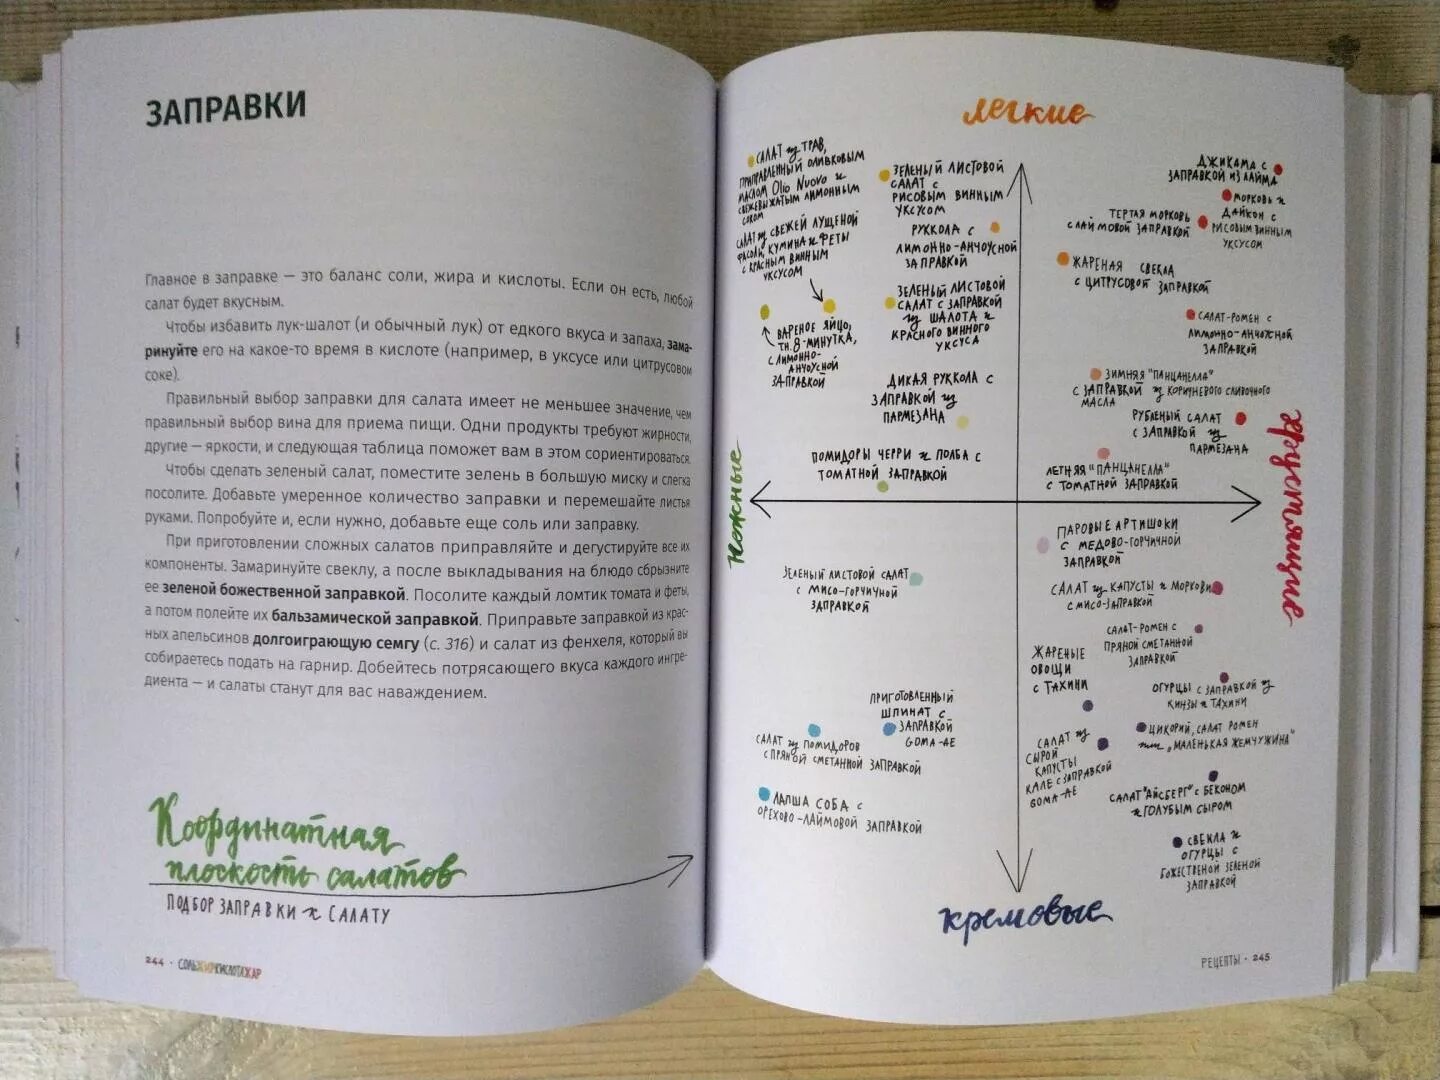 ЗАПРАВКИ
Главное в заправке — это баланс соли, жира и кислоты. Если он есть, любой
салат будет вкусным.
Чтобы избавить лук-шалот (и обычный лук) от едкого вкуса и запаха, зама-
ринуйте его на какое-то время в кислоте (например, в уксусе или цитрусовом
соке).
Правильный выбор заправки для салата имеет не меньшее значение, чем
правильный выбор вина для приема пищи. Одни продукты требуют жирности,
другие — яркости, и следующая таблица поможет вам в этом сориентироваться.
Чтобы сделать зеленый салат, поместите зелень в большую миску и слегка
посолите. Добавьте умеренное количество заправки и перемешайте листья
руками. Попробуйте и, если нужно, добавьте еще соль или заправку.
При приготовлении сложных салатов приправляйте и дегустируйте все их
компоненты. Замаринуйте свеклу, а после выкладывания на блюдо сбрызните
ее зеленой божественной заправкой. Посолите каждый ломтик томата и феты,
а потом полейте их бальзамической заправкой. Приправьте заправкой из крас-
ных апельсинов долгоиграющую семгу (с. 316) и салат из фенхеля, который вы
собираетесь подать на гарнир. Добейтесь потрясающего вкуса каждого ингре-
диента — и салаты станут для вас наваждением.
Координатная
плоскость салатов
ПОДБОР ЗАПРАВКИ к САЛАТУ
244 · СОЛЬЖИРКИСЛОТАЖАР
легкие
САЛАТ из ТРАВ,
ПРИПРАВЛЕННЫЙ ОЛИВКОВЫМ
МАСЛОМ Olio Nuovo и
СВЕЖЕВЫЖАТЫМ ЛИМОННЫМ
СОКОМ
САЛАТ из СВЕЖЕЙ ЛУЩЕНОЙ
ФАСОЛИ, КУМИНА и ФЕТЫ
С КРАСНЫМ ВИННЫМ
УКСУСОМ
ВАРЕНОЕ ЯЙЦО,
ТН. 8-МИНУТКА,
С ЛИМОННО-
АНЧОУСНОЙ
ЗАПРАВКОЙ
ЗЕЛЕНЫЙ ЛИСТОВОЙ
САЛАТ С
РИСОВЫМ ВИННЫМ
УКСУСОМ
РУККОЛА С
ЛИМОННО-АНЧОУСНОЙ
ЗАПРАВКОЙ
ЗЕЛЕНЫЙ ЛИСТОВОЙ
САЛАТ С ЗАПРАВКОЙ
из ШАЛОТА и
КРАСНОГО ВИННОГО
УКСУСА
ДИКАЯ РУККОЛА С
ЗАПРАВКОЙ из
ПАРМЕЗАНА
ПОМИДОРЫ ЧЕРРИ и ПОЛБА С
ТОМАТНОЙ ЗАПРАВКОЙ
ДЖИКАМА С
ЗАПРАВКОЙ ИЗ ЛАЙМА
МОРКОВЬ и
ДАЙКОН С
РИСОВЫМ ВИННЫМ
УКСУСОМ
ТЕРТАЯ МОРКОВЬ
С ЛАЙМОВОЙ ЗАПРАВКОЙ
ЖАРЕНАЯ СВЕКЛА
С ЦИТРУСОВОЙ ЗАПРАВКОЙ
САЛАТ-РОМЕН С
ЛИМОННО-АНЧОУСНОЙ
ЗАПРАВКОЙ
ЗИМНЯЯ "ПАНЦАНЕЛЛА"
С ЗАПРАВКОЙ из КОРИЧНЕВОГО СЛИВОЧНОГО
МАСЛА
РУБЛЕНЫЙ САЛАТ
С ЗАПРАВКОЙ из
ПАРМЕЗАНА
ЛЕТНЯЯ "ПАНЦАНЕЛЛА"
С ТОМАТНОЙ ЗАПРАВКОЙ
нежные
хрустящие
ЗЕЛЕНЫЙ ЛИСТОВОЙ САЛАТ
С МИСО-ГОРЧИЧНОЙ
ЗАПРАВКОЙ
ПРИГОТОВЛЕННЫЙ
ШПИНАТ С
ЗАПРАВКОЙ
GOMA-AE
САЛАТ из ПОМИДОРОВ
С ПРЯНОЙ СМЕТАННОЙ ЗАПРАВКОЙ
ЛАПША СОБА С
ОРЕХОВО-ЛАЙМОВОЙ ЗАПРАВКОЙ
ПАРОВЫЕ АРТИШОКИ
С МЕДОВО-ГОРЧИЧНОЙ
ЗАПРАВКОЙ
САЛАТ из КАПУСТЫ и МОРКОВИ
С МИСО-ЗАПРАВКОЙ
САЛАТ-РОМЕН С
ПРЯНОЙ СМЕТАННОЙ
ЗАПРАВКОЙ
ЖАРЕНЫЕ
ОВОЩИ
С ТАХИНИ
ОГУРЦЫ С ЗАПРАВКОЙ из
КИНЗЫ и ТАХИНИ
ЦИКОРИЙ, САЛАТ РОМЕН
или „МАЛЕНЬКАЯ ЖЕМЧУЖИНА"
САЛАТ из
СЫРОЙ
КАПУСТЫ
КАЛЕ С ЗАПРАВКОЙ
GOMA-AE
САЛАТ "АЙСБЕРГ" С БЕКОНОМ
и ГОЛУБЫМ СЫРОМ
СВЕКЛА и
ОГУРЦЫ С
БОЖЕСТВЕНОЙ ЗЕЛЕНОЙ
ЗАПРАВКОЙ
кремовые
РЕЦЕПТЫ · 245